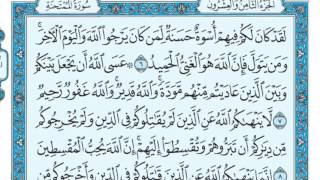 الجُزْءُ الثَّامِنُ وَالعِشْرُونَ سُورَةُ المُمْتَحَنَةِ
لَقَدْ كَانَ لَكُمْ فِيهِمْ أُسْوَةٌ حَسَنَةٌ لِّمَن كَانَ يَرْجُوا۟ ٱللَّهَ وَٱلْيَوْمَ ٱلْءَاخِرَ ۚ
وَمَن يَتَوَلَّ فَإِنَّ ٱللَّهَ هُوَ ٱلْغَنِىُّ ٱلْحَمِيدُ ٦ ۞ عَسَى ٱللَّهُ أَن يَجْعَلَ بَيْنَكُمْ
وَبَيْنَ ٱلَّذِينَ عَادَيْتُم مِّنْهُم مَّوَدَّةً ۚ وَٱللَّهُ قَدِيرٌ ۚ وَٱللَّهُ غَفُورٌ رَّحِيمٌ ٧
لَّا يَنْهَىٰكُمُ ٱللَّهُ عَنِ ٱلَّذِينَ لَمْ يُقَٰتِلُوكُمْ فِى ٱلدِّينِ وَلَمْ يُخْرِجُوكُم
مِّن دِيَٰرِكُمْ أَن تَبَرُّوهُمْ وَتُقْسِطُوٓا۟ إِلَيْهِمْ ۚ إِنَّ ٱللَّهَ يُحِبُّ ٱلْمُقْسِطِينَ ٨
إِنَّمَا يَنْهَىٰكُمُ ٱللَّهُ عَنِ ٱلَّذِينَ قَٰتَلُوكُمْ فِى ٱلدِّينِ وَأَخْرَجُوكُم مِّن